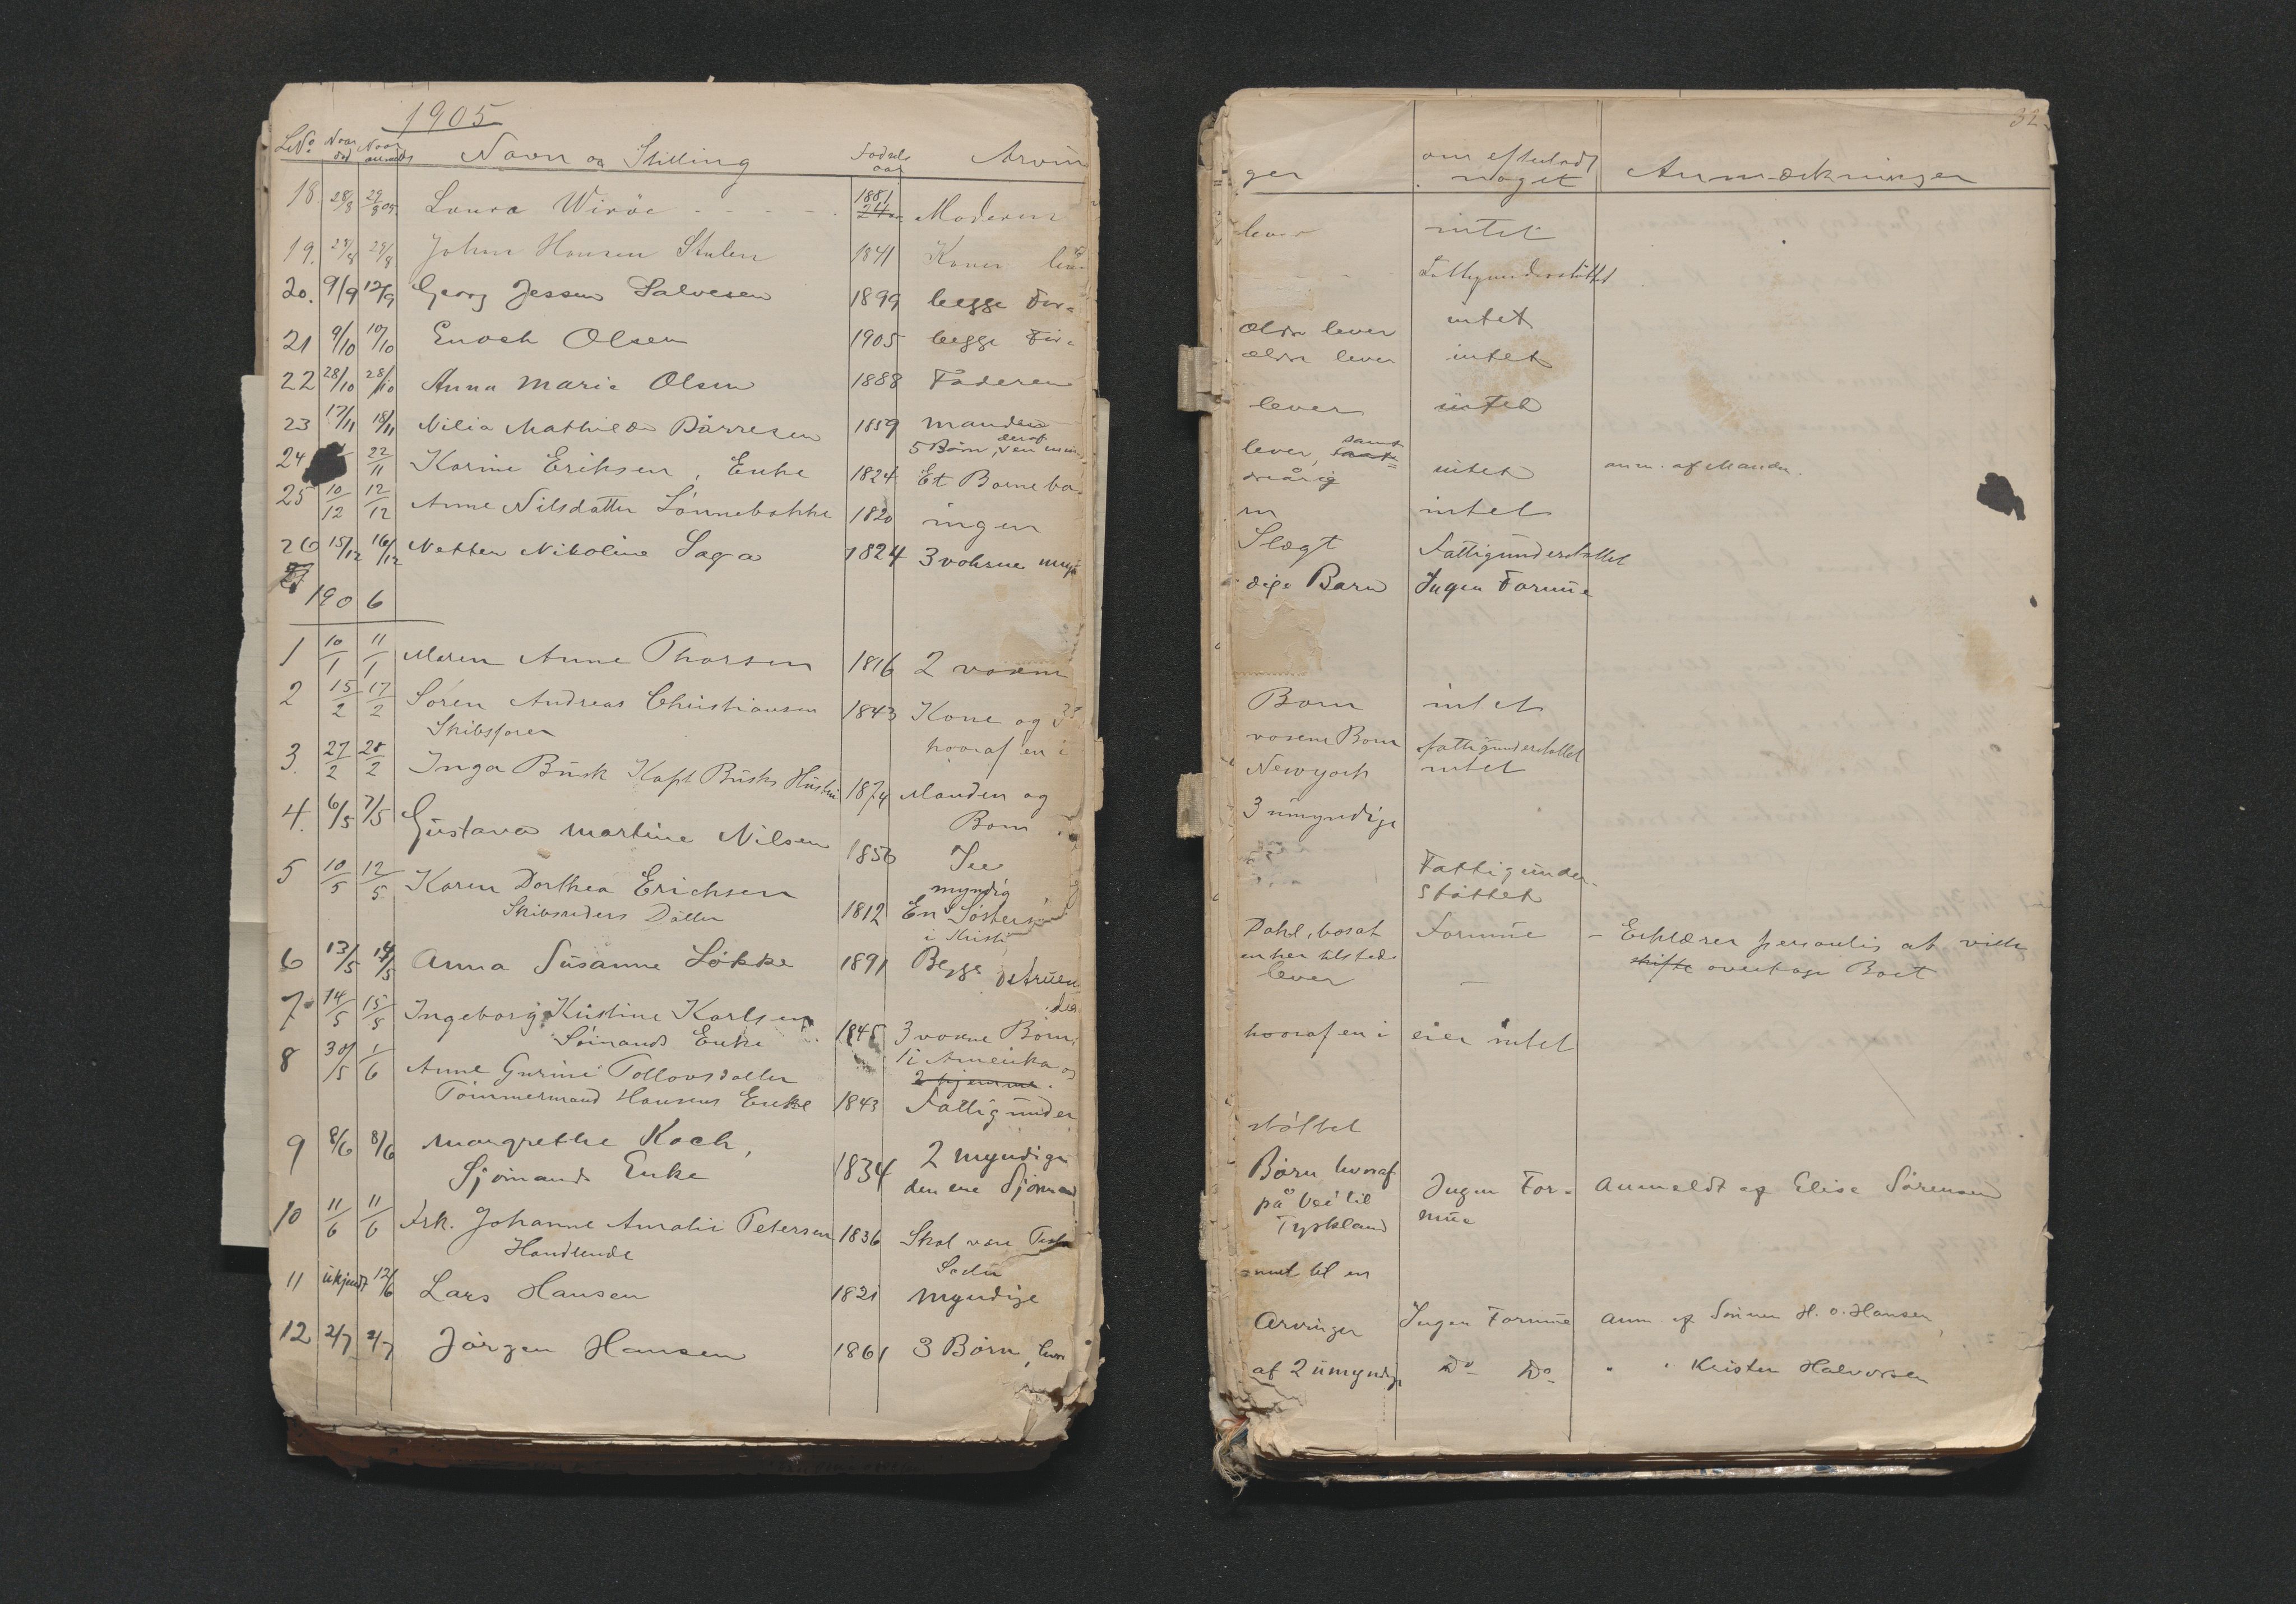 1905
LNo Naar död Naar anmeldt Navn og Stilling Födsels aar Arvin
18. 28/8 29/8 05. Laura Wiröe - - - - 1881 Moderen
19. 28/8 29/8 Johan Hansen Stulen 1841 Konen lever
20. 9/9 12/9 Georg Jessen Salvesen 1899 begge For=
21 9/10 10/10 Enock Olsen 1905 begge For=
22 28/10 28/10 Anna Marie Olsen 1888 Faderen
23 17/11 18/11 Nilia Mathilde Börresen 1859 manden
5 Börn, deraf en umin
24 22/11 Karine Eriksen, Enke 1824 Et Barneba
25 10/12 12/12 Anne Nilsdatter Lönnebakke 1820 ingen
26 15/12 16/12 Netten Nikoline Saga 1824 3 voksne myn
27
1906
1 10/1 11/1 Maren Anne Thorsen 1816 2 voxne
2 15/2 17/2 Sören Andreas Christiansen 1843 Kone og 3
Skibsförer hvoraf en i
3. 27/2 28/2 Inga Busk Kapt Busks Hustru 1874 Manden og
Börn
4. 6/5 7/5 Gustava Martine Nilsen 1856
5 10/5 12/5 Karen Dorthea Erichsen 1812 En myndig Söstersön
Skibsreders Datter i Kristi
6 13/5 14/5 Anna Susanne Lökke 1891 Begge
7 14/5 15/5 Ingeborg Kristine Karlsen 1845 3 voxne Börn,
Sömands Enke 1 i Amerika og
2 hjemme.
8 30/5 1/6 Anne Gurine Tollovsdatter
Tömmermand Hansens Enke 1843 Fattigunder
9 8/6 8/6 Margrethe Koch, 2 myndige
Sjömands Enke 1834 den ene Sjömand
10 11/6 11/6 Frk. Johanne Amalie Petersen 1836 Skal være Testa
Handlende
11 ukjendt 12/6 Lars Hansen 1821 myndige
12 2/7 2/7 Jörgen Hansen 1861 3 Börn, hvor
32.
ger om efterladt noget Anmærkninger
lever intet
Fattigunderstöttet
ældre lever intet
ældre lever intet
lever intet
lever, samt
dreårig intet anm. af Manden.
rn intet
Slægt Fattigunderstöttet
dige Barn Ingen Formue
Börn intet
voxne Börn fattigunderstöttet
Newyork intet
3 umyndige
Fattigunder-
stöttet
Dahl, bosat Formue - Erklærer personlig at ville
en her tilstede skifte overtage Boet
lever -
hvoraf en i eier intet
stöttet
Börn, hvoraf
på vei til Ingen For= Anmeldt af Elise Sörensen
Tyskland mue
ment til en
Arvinger Ingen Formue Anm. af Sönnen H. O. Hansen
af 2 umyndige Do Do " " Kristen Halvorsen